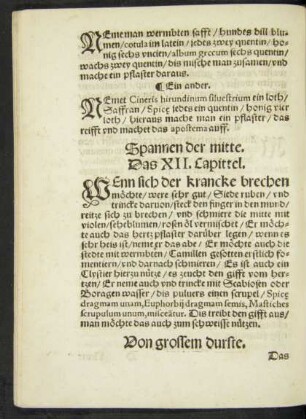 NEme man wermbten safft / hundes dill blu-
men / cotula im latein / jedes zwey quentin / ho-
nig sechs vncien / album grecum sechs quentin /
wachs zwey quentin / dis mische man zusamen / vnd
mache ein pflaster daraus.
¶ Ein ander.
NEmet Cineris hirundinum siluestrium ein loth /
Saffran / Spicę jedes ein quentin / honig vier
loth / hieraus mache man ein pflaster / das
reifft vnd machet das apostema auff.
Spannen der mitte.
Das XII. Capittel.
WEnn sich der krancke brechen
möchte / were sehr gut / Siede ruben / vnd
trincke daruon / steck den finger in den mund /
reitze sich zu brechen / vnd schmiere die mitte mit
violen / seheblumen / rosen öl vermischet / Er möch-
te auch das hertzpflaster darüber legen / wenn es
sehr heis ist / neme er das abe / Er möchte auch die
stedte mit wermbten / Camillen gesotten erstlich fo-
mentiern / vnd darnach schmieren / Es ist auch ein
Clystier hierzu nütze / es zeucht den gifft vom her-
tzen / Er neme auch vnd trincke mit Scabiosen oder
Boragen wasser / dis puluers einen scrupel / Spicę
dragmam unam, Euphorbij dragmam semis, Mastiches
scrupulum unum, misceātur. Dis treibt den gifft aus /
man möchte das auch zum schweisse nützen.
Von grossem durste.
Das